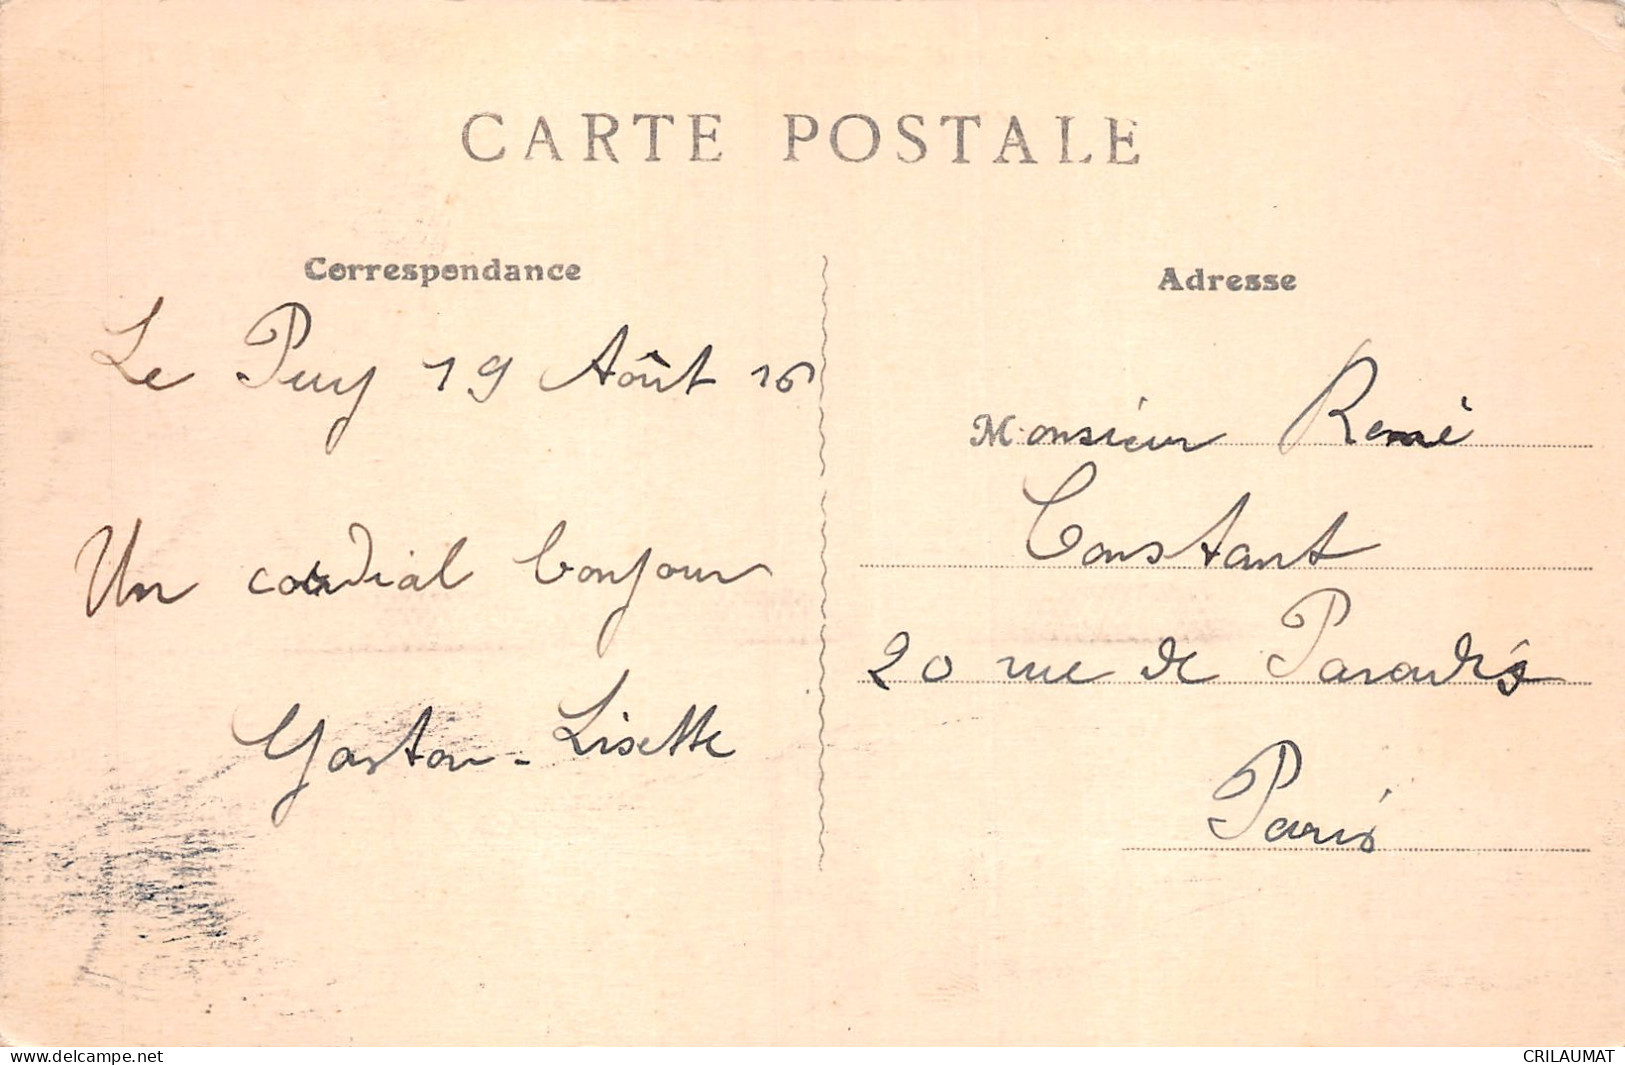 CARTE POSTALE
Correspondance
Le Puy 19 Août 16
Un cordial bonjour
Gaston - Lisette
Adresse
Monsieur René
Constant
20 rue de Paradis
Paris
www.delcampe.net
CRILAUMAT